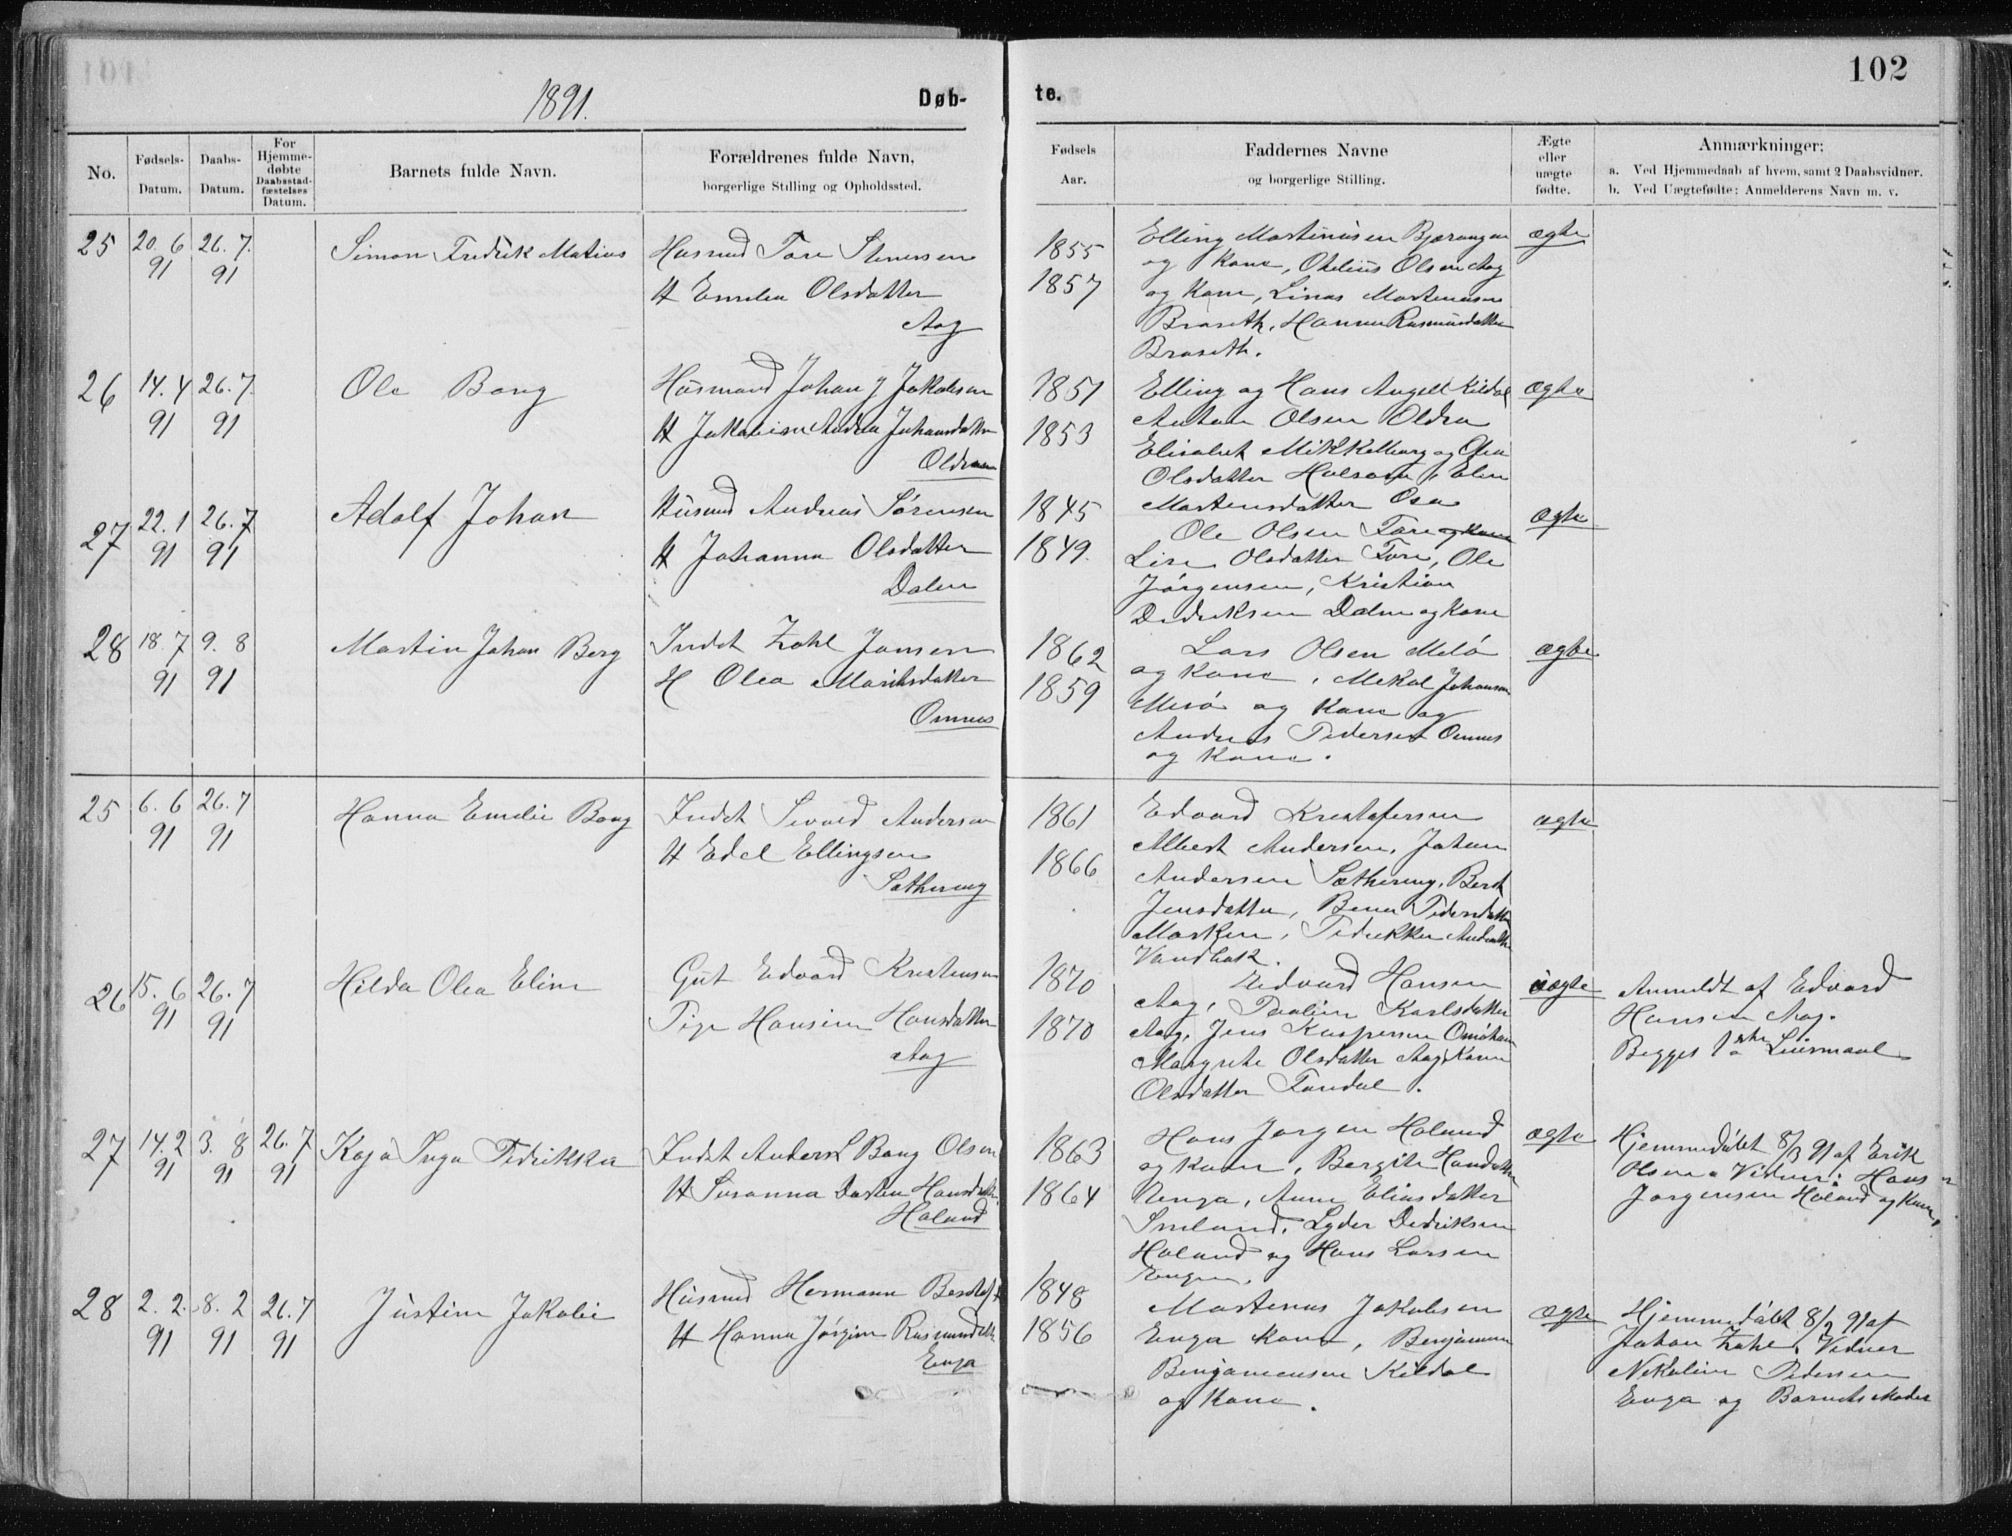 102
1891.
Døb-
te.
No.
Fødsels-
Datum.
Daabs-
Datum.
For
Hjemme-
døbte
Daabsstad-
fæstelses
Datum.
Barnets fulde Navn.
Forældrenes fulde Navn,
borgerlige Stilling og Opholdssted.
Fødsels
Aar.
Faddernes Navne
og borgerlige Stilling.
Ægte
eller
uægte
fødte.
Anmærkninger:
a. Ved Hjemmedaab af hvem, samt 2 Daabsvidner.
b. Ved Uægtefødte: Anmelderens Navn m. v.
25
20. 6
91
26. 7.
91
Simon Fredrik Matius
Husmd Tore Stenersen
H Emelia Olsdatter
Aag
1855
1857
Elling Martinusen Bjærangen
og Kone, Otelius Olsen Aag
og Kone, Linas Martinusen
Braseth, Hanna Rasmusdatter
Braseth.
ægte
26
14. 4
91
26. 7.
91
Ole Bang
Husmand Johan J Jakobsen
H Jakobine Andrea Johansdatter
1851
1853
Elling og Hans Angell Kildal
Anton Olsen Oldra
Elisabet Mikkelborg og Olea
Olsdatter
Martensdatter
ægte
27
22. 1
91
26. 7
91
Adolf Johan
Husmd Andreas Sørensen
H Johanna Olsdatter
Dalen
1845
1849.
Ole Olsen Fore og Kone
Lise Olsdatter Fore, Ole
Jørgensen, Kristian
Dedriksen Dalen og Kone
ægte
28
18. 7
91
9. 8
91
Martin Johan Berg
Indst Zahl Jansen
H Olea
Ornnes
1862
1859
Lars Olsen Melø
og Kone, Mikal Johansen
Mesø og Kone og
Andreas Pedersen Ornnes
og Kone.
ægte
25
6. 6
91
26. 7
91
Hanna Emelie Bang
Indst Sivald Andersen
H Edel Ellingsen
Sætherng
1861
1866
Edvard Kristofersen
Albert Andersen, Johan
Andersen Sætherng, Berit
Jensdatter, Pedersdatter
Marken,
ægte
26
15. 6
91
26. 7
91
Hilda Olea Eline
Gut Edvard Kristensen
Pige Hansine Hansdatter
Aag
1870
1870
Edvard Hansen
Aag, Pauline Karlsdatter
Aag, Jens Kaspersen
Margrete Olsdatter Aag,
Olsdatter
uægte
Anmeldt af Edvard
Hansen Aag.
Begges 1ste Leiermaal
27
14. 2
91
3. 8
91
26. 7
91
Kaja Inga Fredrikka
Indst Anders Bang Olsen
H Susanna Dorthea Hansdatter
Haland
1863
1864
Hans Jørgen Haland
og Kone, Bergite Hansdatter
Aenga, Anne Eliasdatter
Lyder Dedriksen
Haland og Hans Larsen
Engen.
ægte
Hjemmedøbt 8/3 91 af Erik
Olsen. Vidner: Hans
Jørgensen Haland og Kone,
28
2. 2.
91
8. 2
91
26. 7
91
Justine Jakobie
Husmd Hermann
H Hanna Jørgine Rasmusdatter
Enga
1848
1856
Martinus Jakobsen
Enga Kone, Benjamin
Benjaminsen Kildal
og Kone.
ægte
Hjemmedøbt 8/2 91 af
Johan Zahl. Vidner
Nikoline Pedersen
Enga og Barnets Moder